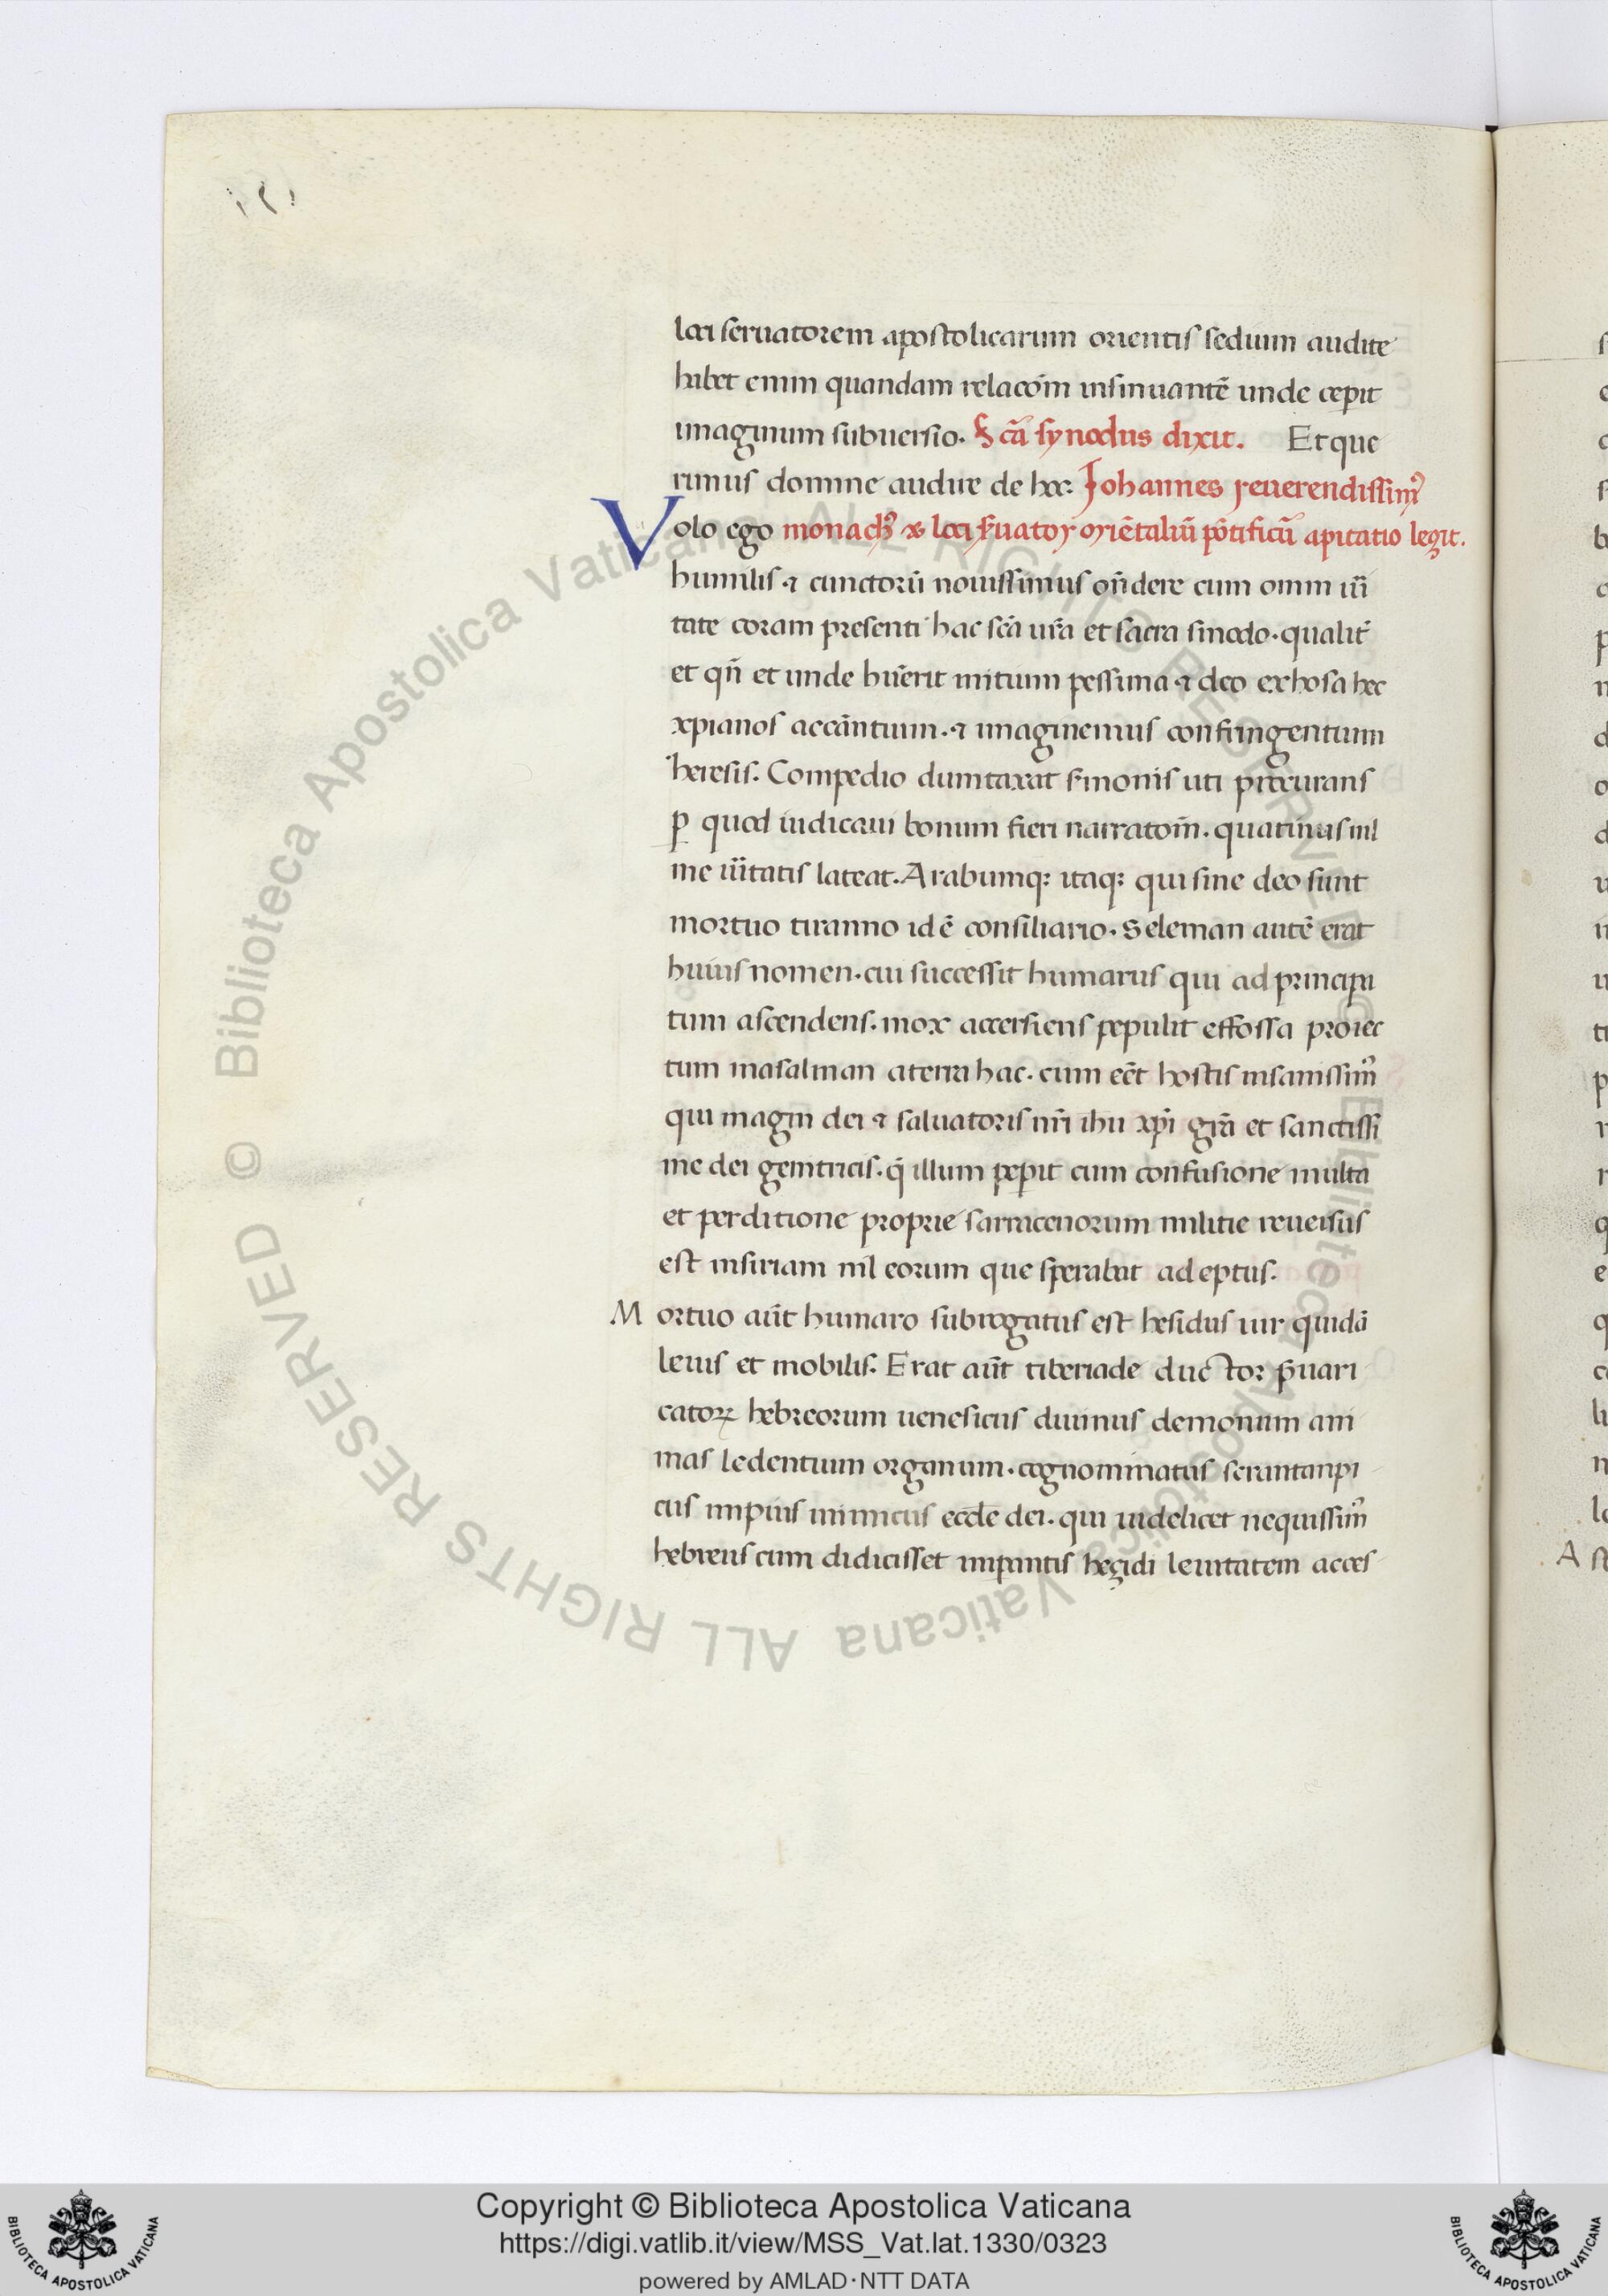 loci seruatorem apostolicarum orientis sedium audite
habet enim quandam relacōm insinuantē unde cepit
imaginum subuersio. Scā synodus dixit. Et que
rimus domine audire de hoc. Johannes reuerendissim᷒
Volo ego monach᷒ & loci s̄uator oriētaliū pōtificū apitatio legit.
humilis ⁊ cunctorū nouissimus on̄dere cum omni ur̄i
tate coram presenti hac scā ur̄a et sacra sinodo. qualit̄
et qn̄ et unde hūerit initium pessima ⁊ deo exhosa hec
xpianos accāntium. ⁊ imaginemus confringentium
heresis. Compedio dumtaxat s̄monis uti procurans
ꝑ quod iudicaui bonum fieri narratōm̄. quatinus nil
me ūitatis lateat. Arabumqꝫ itaqꝫ qui sine deo sunt
mortuo tiranno id ē consiliario. Seleman autē erat
huius nomen. cui successit humarus qui ad principa
tum ascendens. mox accersiens pepulit effossa proiec
tum masalman a terra hac. cum eēt hostis insanissim᷒
qui magin dei ⁊ saluatoris nr̄i ihu xp̄i grā et sanctissi
me dei genitricis. q̄ illum peperit cum confusione multa
et perditione proprie sarracenorum militie reuersus
est insiriam nil eorum que sperabat adeptus.
Mortuo aūt humaro subrogatus est hesidus uir quidā
leuis et mobilis. Erat aūt tiberiade ductor p̄uari
catoꝝ hebreorum ueneficus diuinus demonum ani
mas ledentium organum. cognominatus serantanpi
cus impius inimicus eccl̄e dei. qui uidelicet nequissim᷒
hebreus cum didicisset imperantis hegidi leuitatem acces
A
Copyright © Biblioteca Apostolica Vaticana
https://digi.vatlib.it/view/MSS_Vat.lat.1330/0323
powered by AMLAD·NTT DATA
BIBLIOTECA APOSTOLICA VATICANA
BIBLIOTECA APOSTOLICA VATICANA
© Biblioteca Apostolica Vaticana ALL RIGHTS RESERVED © Biblioteca Apostolica Vaticana ALL RIGHTS RESERVED